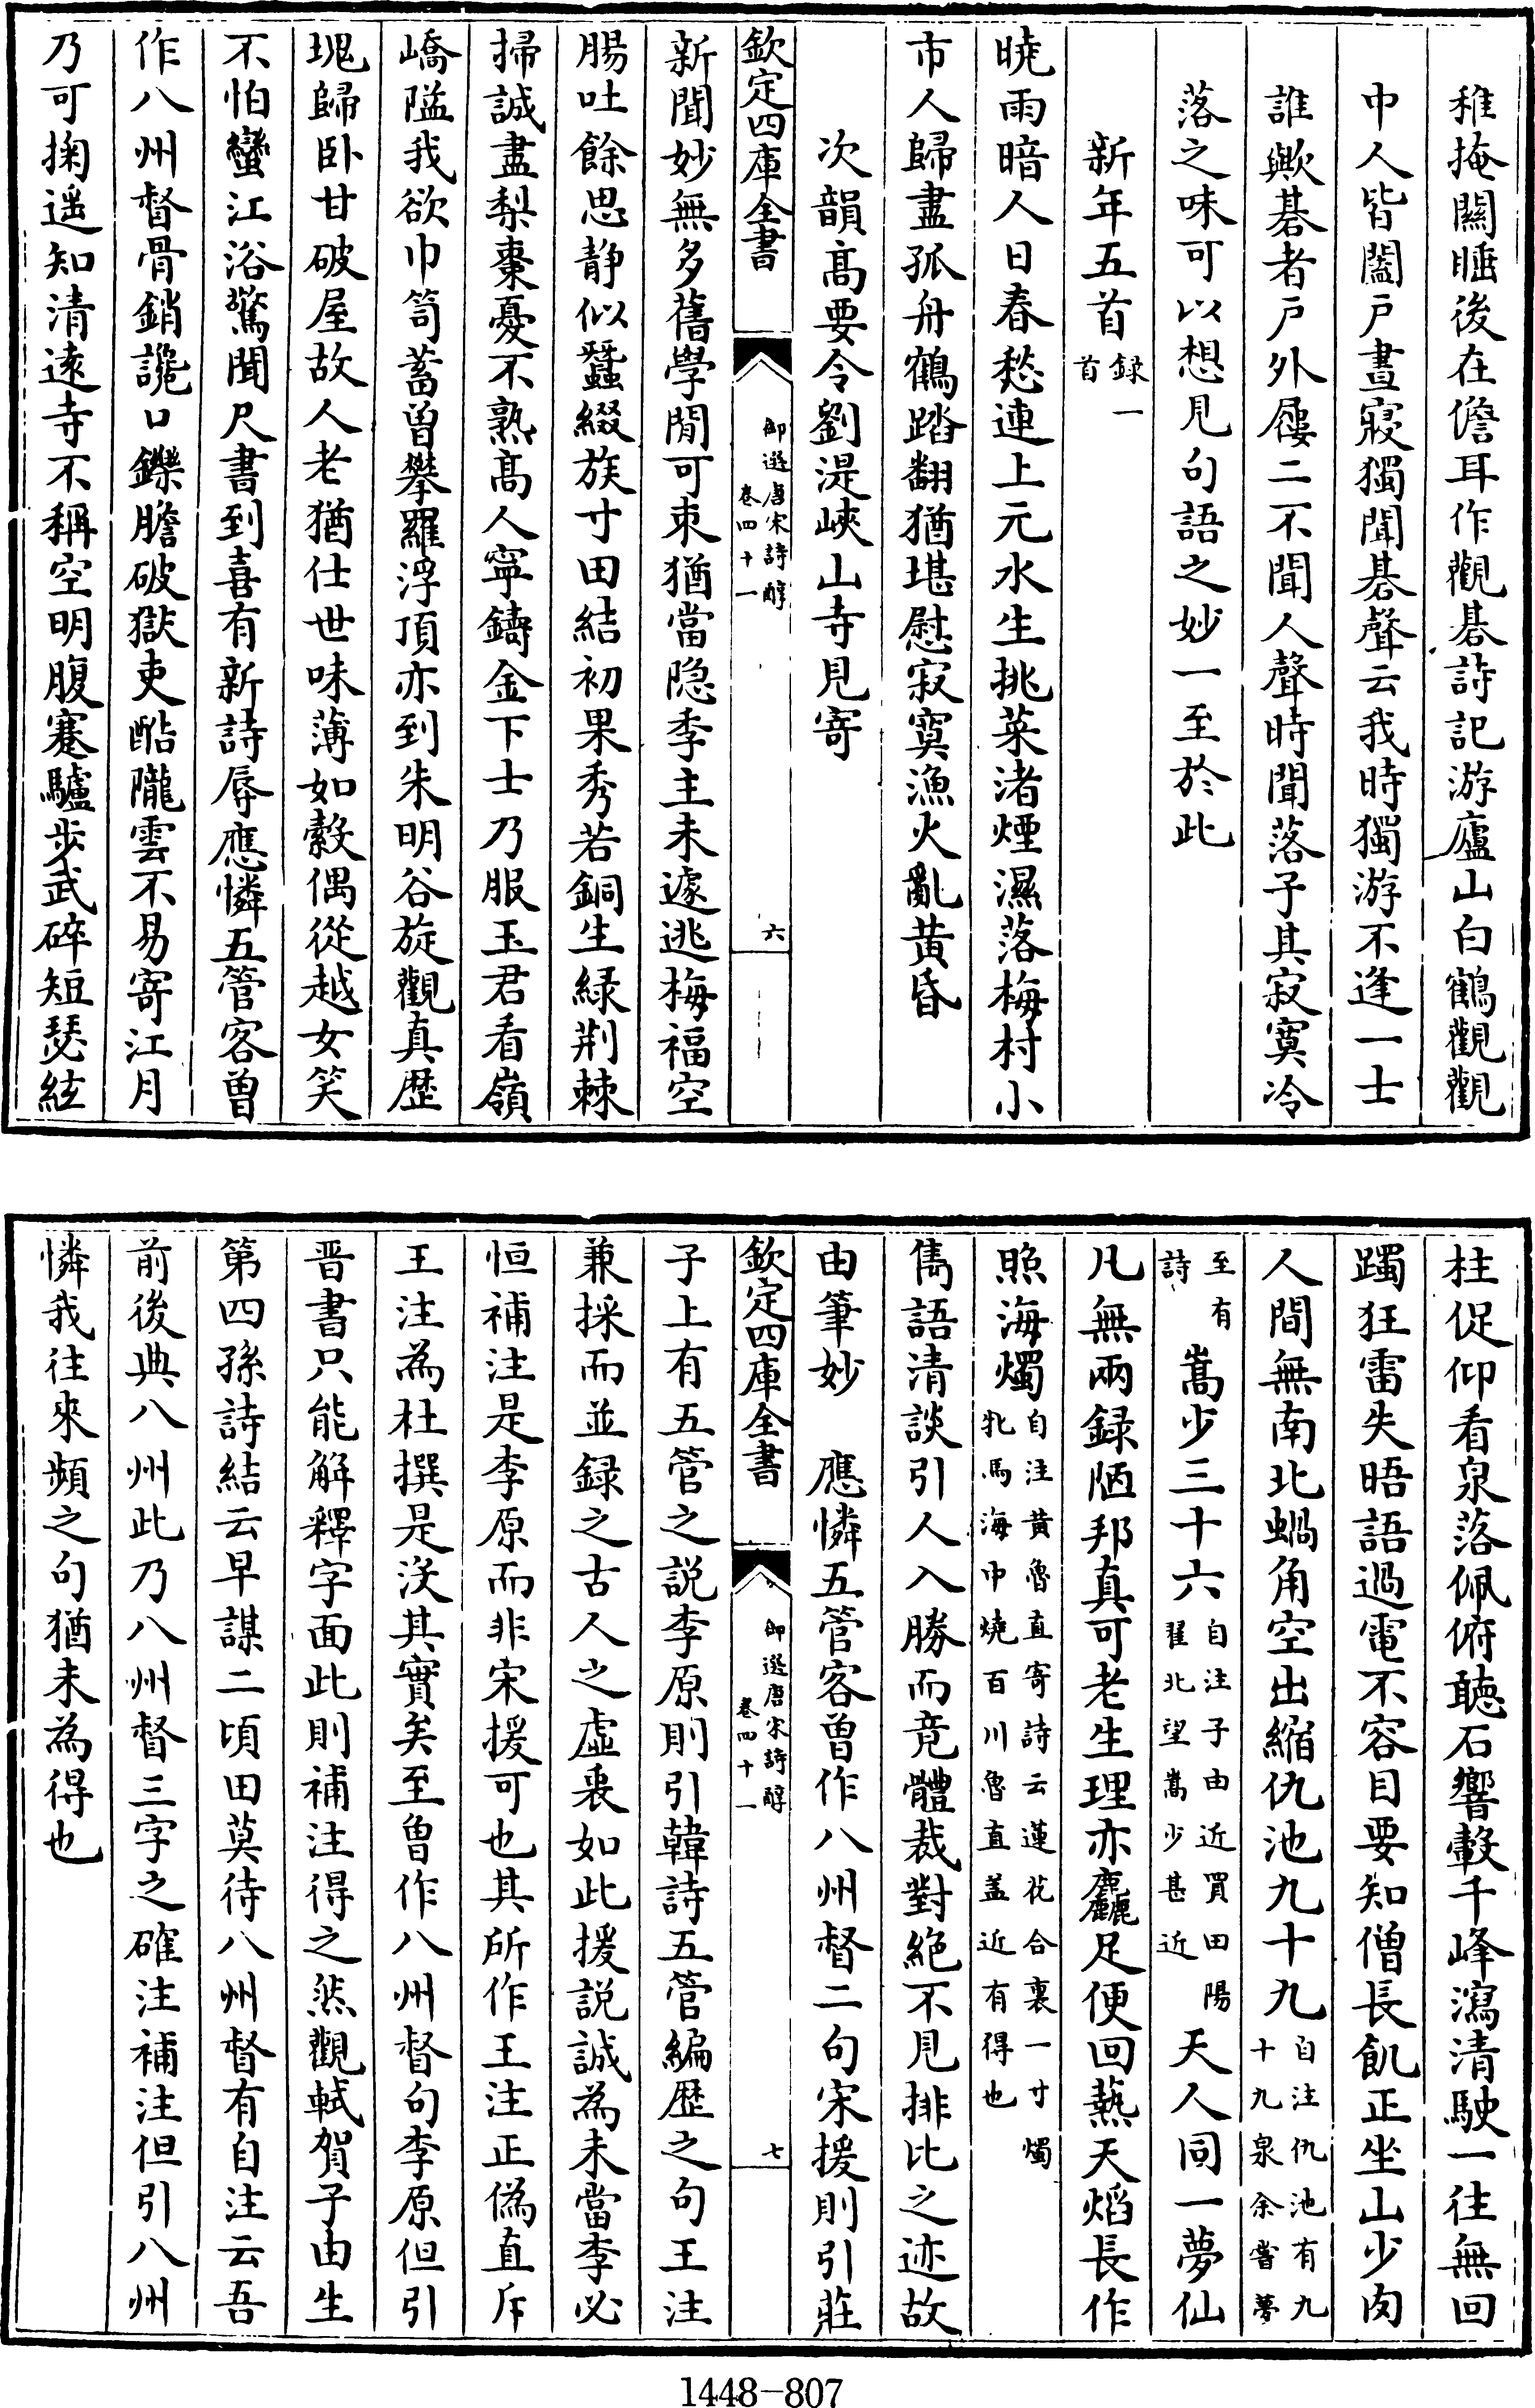 稚掩關睡後在儋耳作觀棊詩記游廬山白鶴觀觀
中人皆闔戶晝寢獨聞棊聲云我時獨游不逢一士
誰歟棊者戶外屨二不聞人聲時聞落子其寂寞冷
落之味可以想見句語之妙一至於此
新年五首録一首
曉雨暗人日春愁連上元水生挑菜渚煙濕落梅村小
市人歸盡孤舟鶴踏翻猶堪慰寂寞漁火亂黄昏
次韻髙要令劉湜峽山寺見寄
欽定四庫全書 御選唐宋詩醇 卷四十一 六
新聞妙無多舊學閒可束猶當隠季主未遽逃梅福空
腸吐餘思静似蠶綴族寸田結初果秀若銅生緑荆棘
掃誠盡梨棗憂不熟髙人寧鑄金下士乃服玉君看嶺
嶠隘我欲巾笥蓄曽攀羅浮頂亦到朱明谷旋觀真歴
塊歸卧甘破屋故人老猶仕世味薄如縠偶從越女笑
不怕蠻江浴驚聞尺書到喜有新詩辱應憐五管客曽
作八州督骨銷讒口鑠膽破獄吏酷隴雲不易寄江月
乃可掬遥知清逺寺不稱空明腹蹇驢步武碎短瑟絃
柱促仰看泉落佩俯聴石響轂千峰瀉清駛一往無回
躅狂雷失晤語過電不容目要知僧長飢正坐山少肉
人間無南北蝸角空出縮仇池九十九自注仇池有九十九泉余嘗夢
至有詩嵩少三十六自注子由近買田陽翟北望嵩少甚近天人同一夢仙
凡無兩録陋邦真可老生理亦麤足便回爇天熖長作
照海燭自注黄魯直寄詩云蓮花合裏一寸燭牝馬海中燒百川魯直葢近有得也
雋語清談引人入勝而竟體裁對絶不見排比之迹故
由筆妙 應憐五管客曽作八州督二句宋援則引莊
欽定四庫全書 御選唐宋詩醇 卷四十一 七
子上有五管之説李原則引韓詩五管編歴之句王注
兼採而並録之古人之虚衷如此援説誠為未當李必
恒補注是李原而非宋援可也其所作王注正偽直斥
王注為杜撰是没其實矣至曽作八州督句李原但引
晋書只能解釋字面此則補注得之然觀軾賀子由生
第四孫詩結云早謀二頃田莫待八州督有自注云吾
前後典八州此乃八州督三字之確注補注但引八州
憐我往來頻之句猶未為得也
1448-807